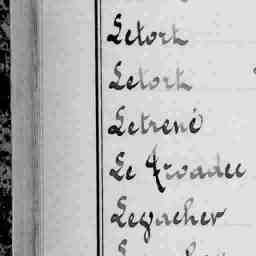 Letort
Letort
Letrené
Le Troadec
Legacher